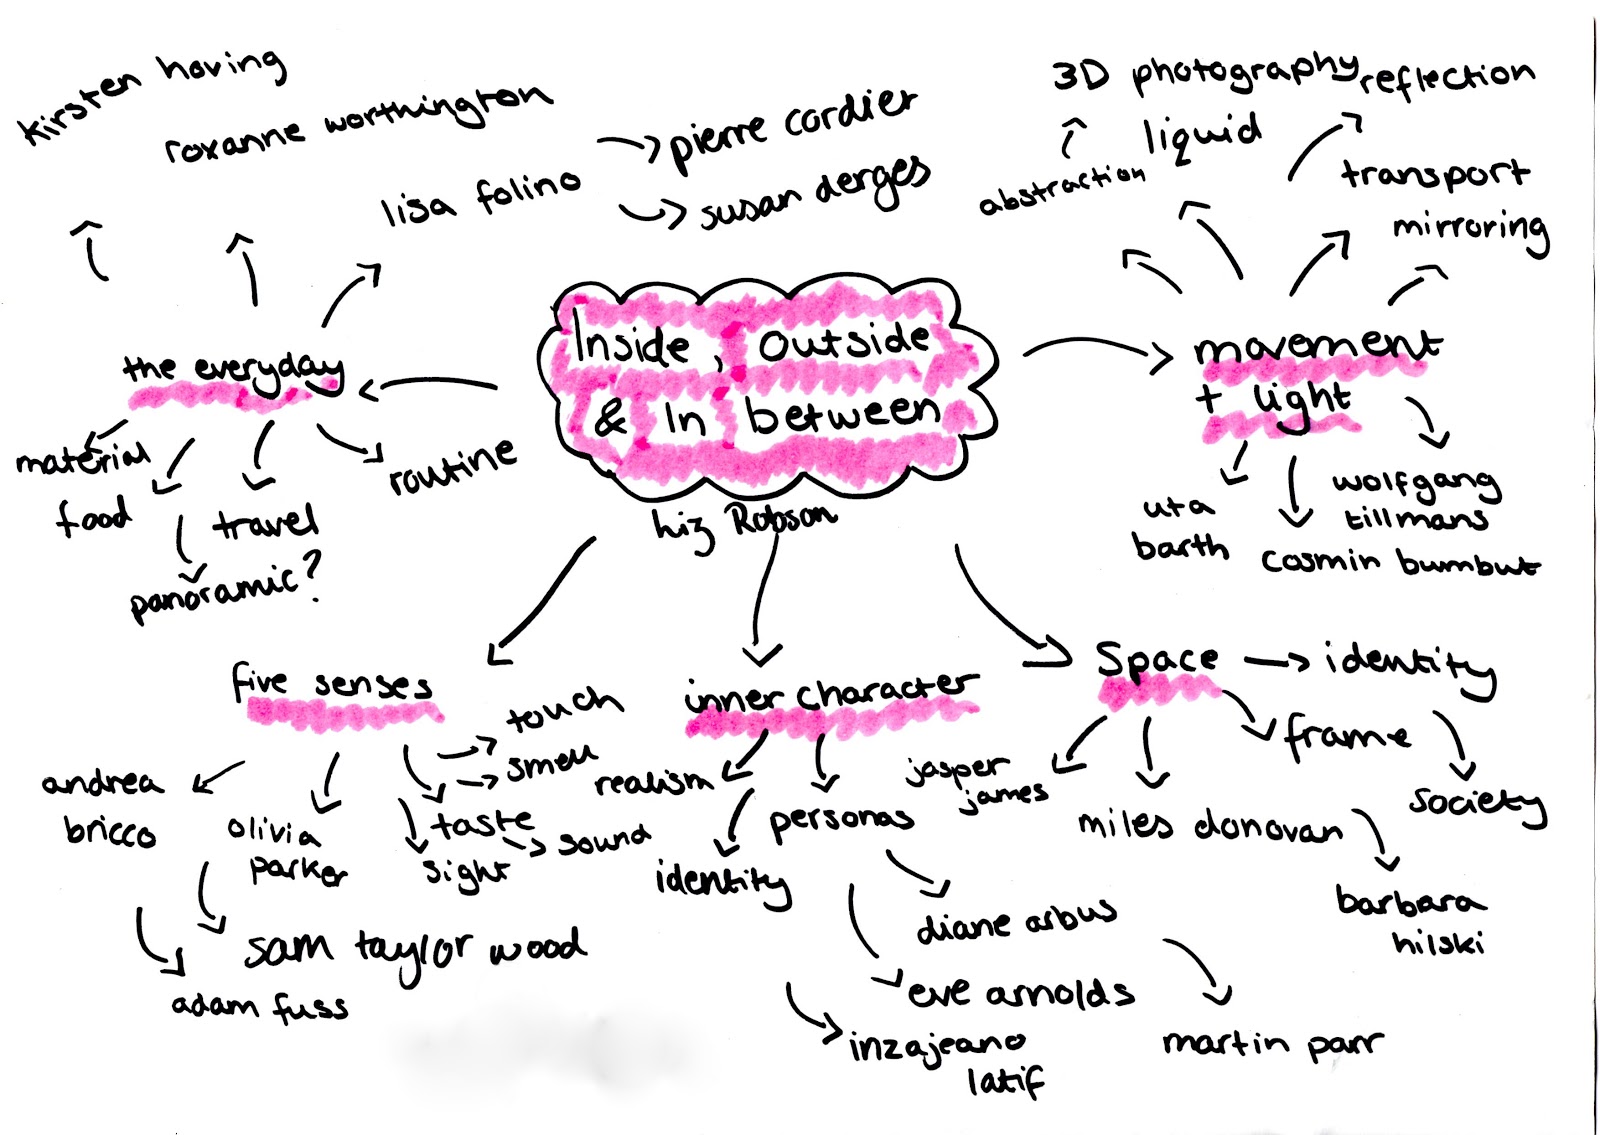 kirsten hoving
roxanne worthington
lisa folino
pierre cordier
susan derges
3D photography
reflection
liquid
abstraction
transport
mirroring
Inside, Outside
& In between
Liz Robson
the everyday
material
food
travel
routine
panoramic?
movement
+ light
uta
barth
wolfgang
tillmans
cosmin bumbut
five senses
touch
smell
taste
sound
sight
andrea
bricco
olivia
parker
sam taylor wood
adam fuss
inner character
realism
identity
personas
diane arbus
eve arnolds
inzajeano
latif
martin parr
Space
identity
frame
society
jasper
james
miles donovan
barbara
hilski